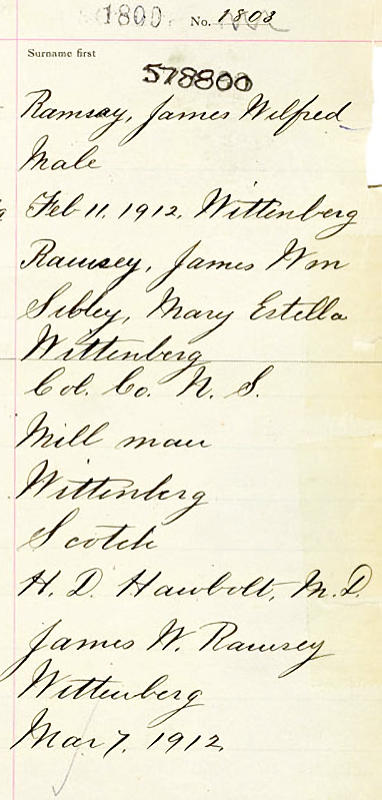 1800 No. 1803
Surname first
578800
Ramsay, James Wilfred
Male
Feb 11, 1912, Wittenberg
Ramsey, James Wm
Sibley, Mary Estella
Wittenberg
Col. Co. N. S.
Mill man
Wittenberg
Scotch
H. D. Hawbolt, M. D.
James W. Ramsey
Wittenberg
Mar 7, 1912